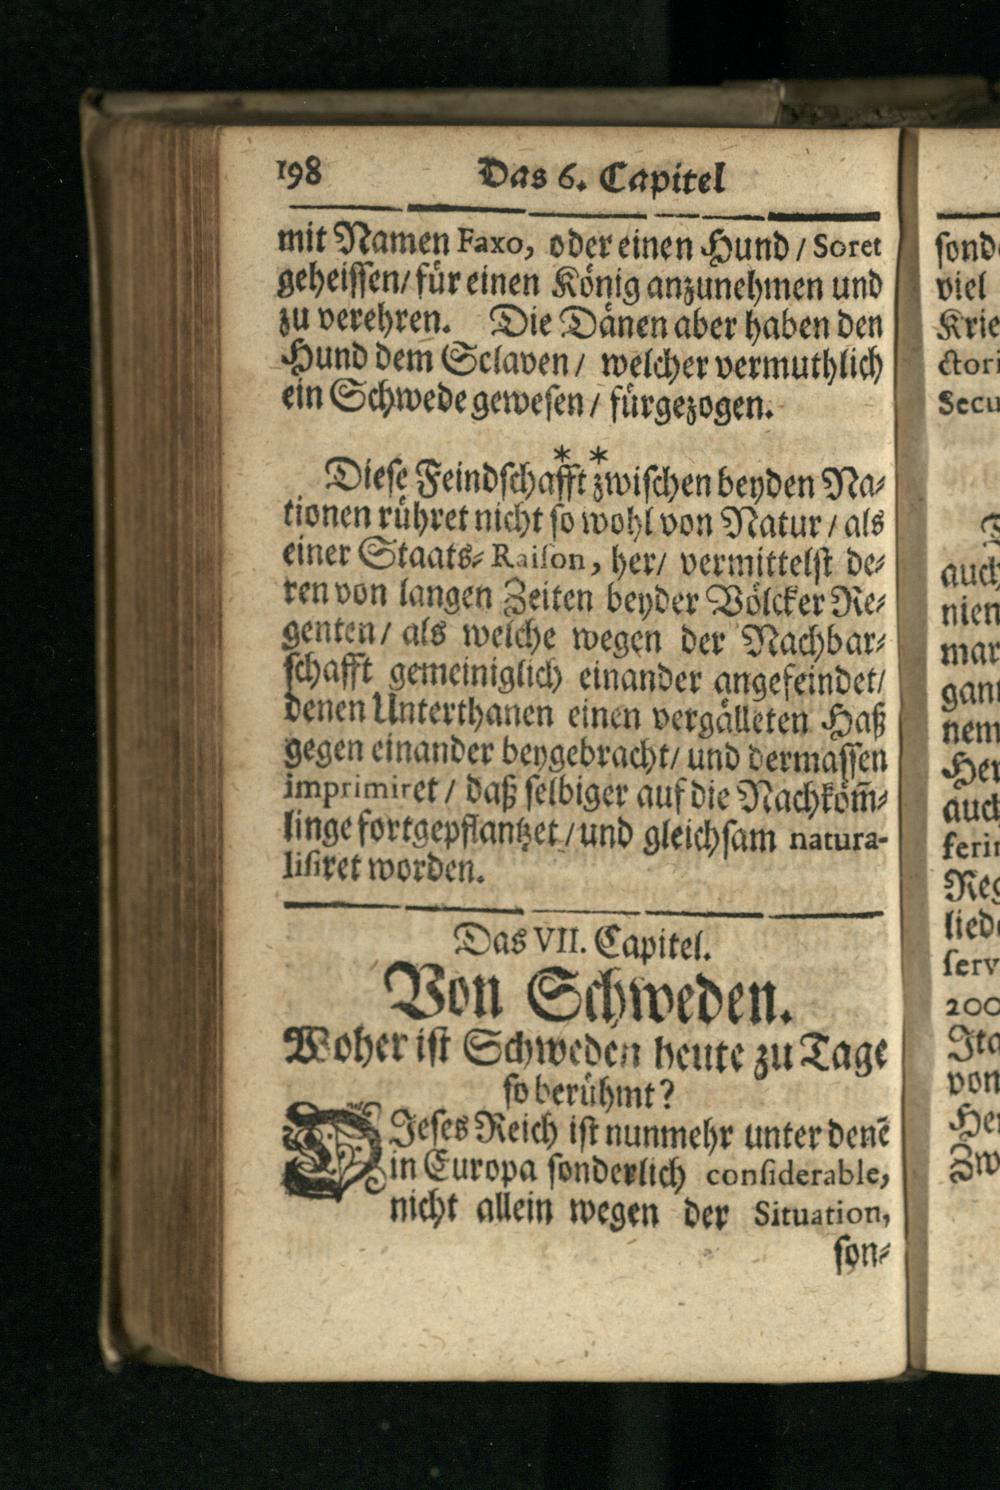 198 Das 6. Capitel
mit Namen Faxo, oder einen Hund / Soret
geheissen/ für einen König anzunehmen und
zu verehren. Die Dänen aber haben den
Hund dem Sclaven / welcher vermuthlich
ein Schwede gewesen / fürgezogen.
* *
Diese Feindschafft zwischen beyden Na⸗
tionen rühret nicht so wohl von Natur / als
einer Staats⸗ Raiſon, her/ vermittelst de⸗
ren von langen Zeiten beyder Völcker Re⸗
genten/ als welche wegen der Nachbar⸗
schafft gemeiniglich einander angefeindet/
denen Unterthanen einen vergälleten Haß
gegen einander beygebracht/ und dermassen
imprimiret / daß selbiger auf die Nachköm̃⸗
linge fortgepflantzet / und gleichsam natura-
liſiret worden.
Das VII. Capitel.
Von Schweden.
Woher ist Schweden heute zu Tage
so berühmt?
DIeses Reich ist nunmehr unter denē
in Europa sonderlich conſiderable,
nicht allein wegen der Situation,
son⸗
sond
viel
Krie
ctori
Secu
auch
nien
mar
gant
nem
Her
auch
ferin
Reg
lied
ſerv
200
Ita
von
Her
Zw